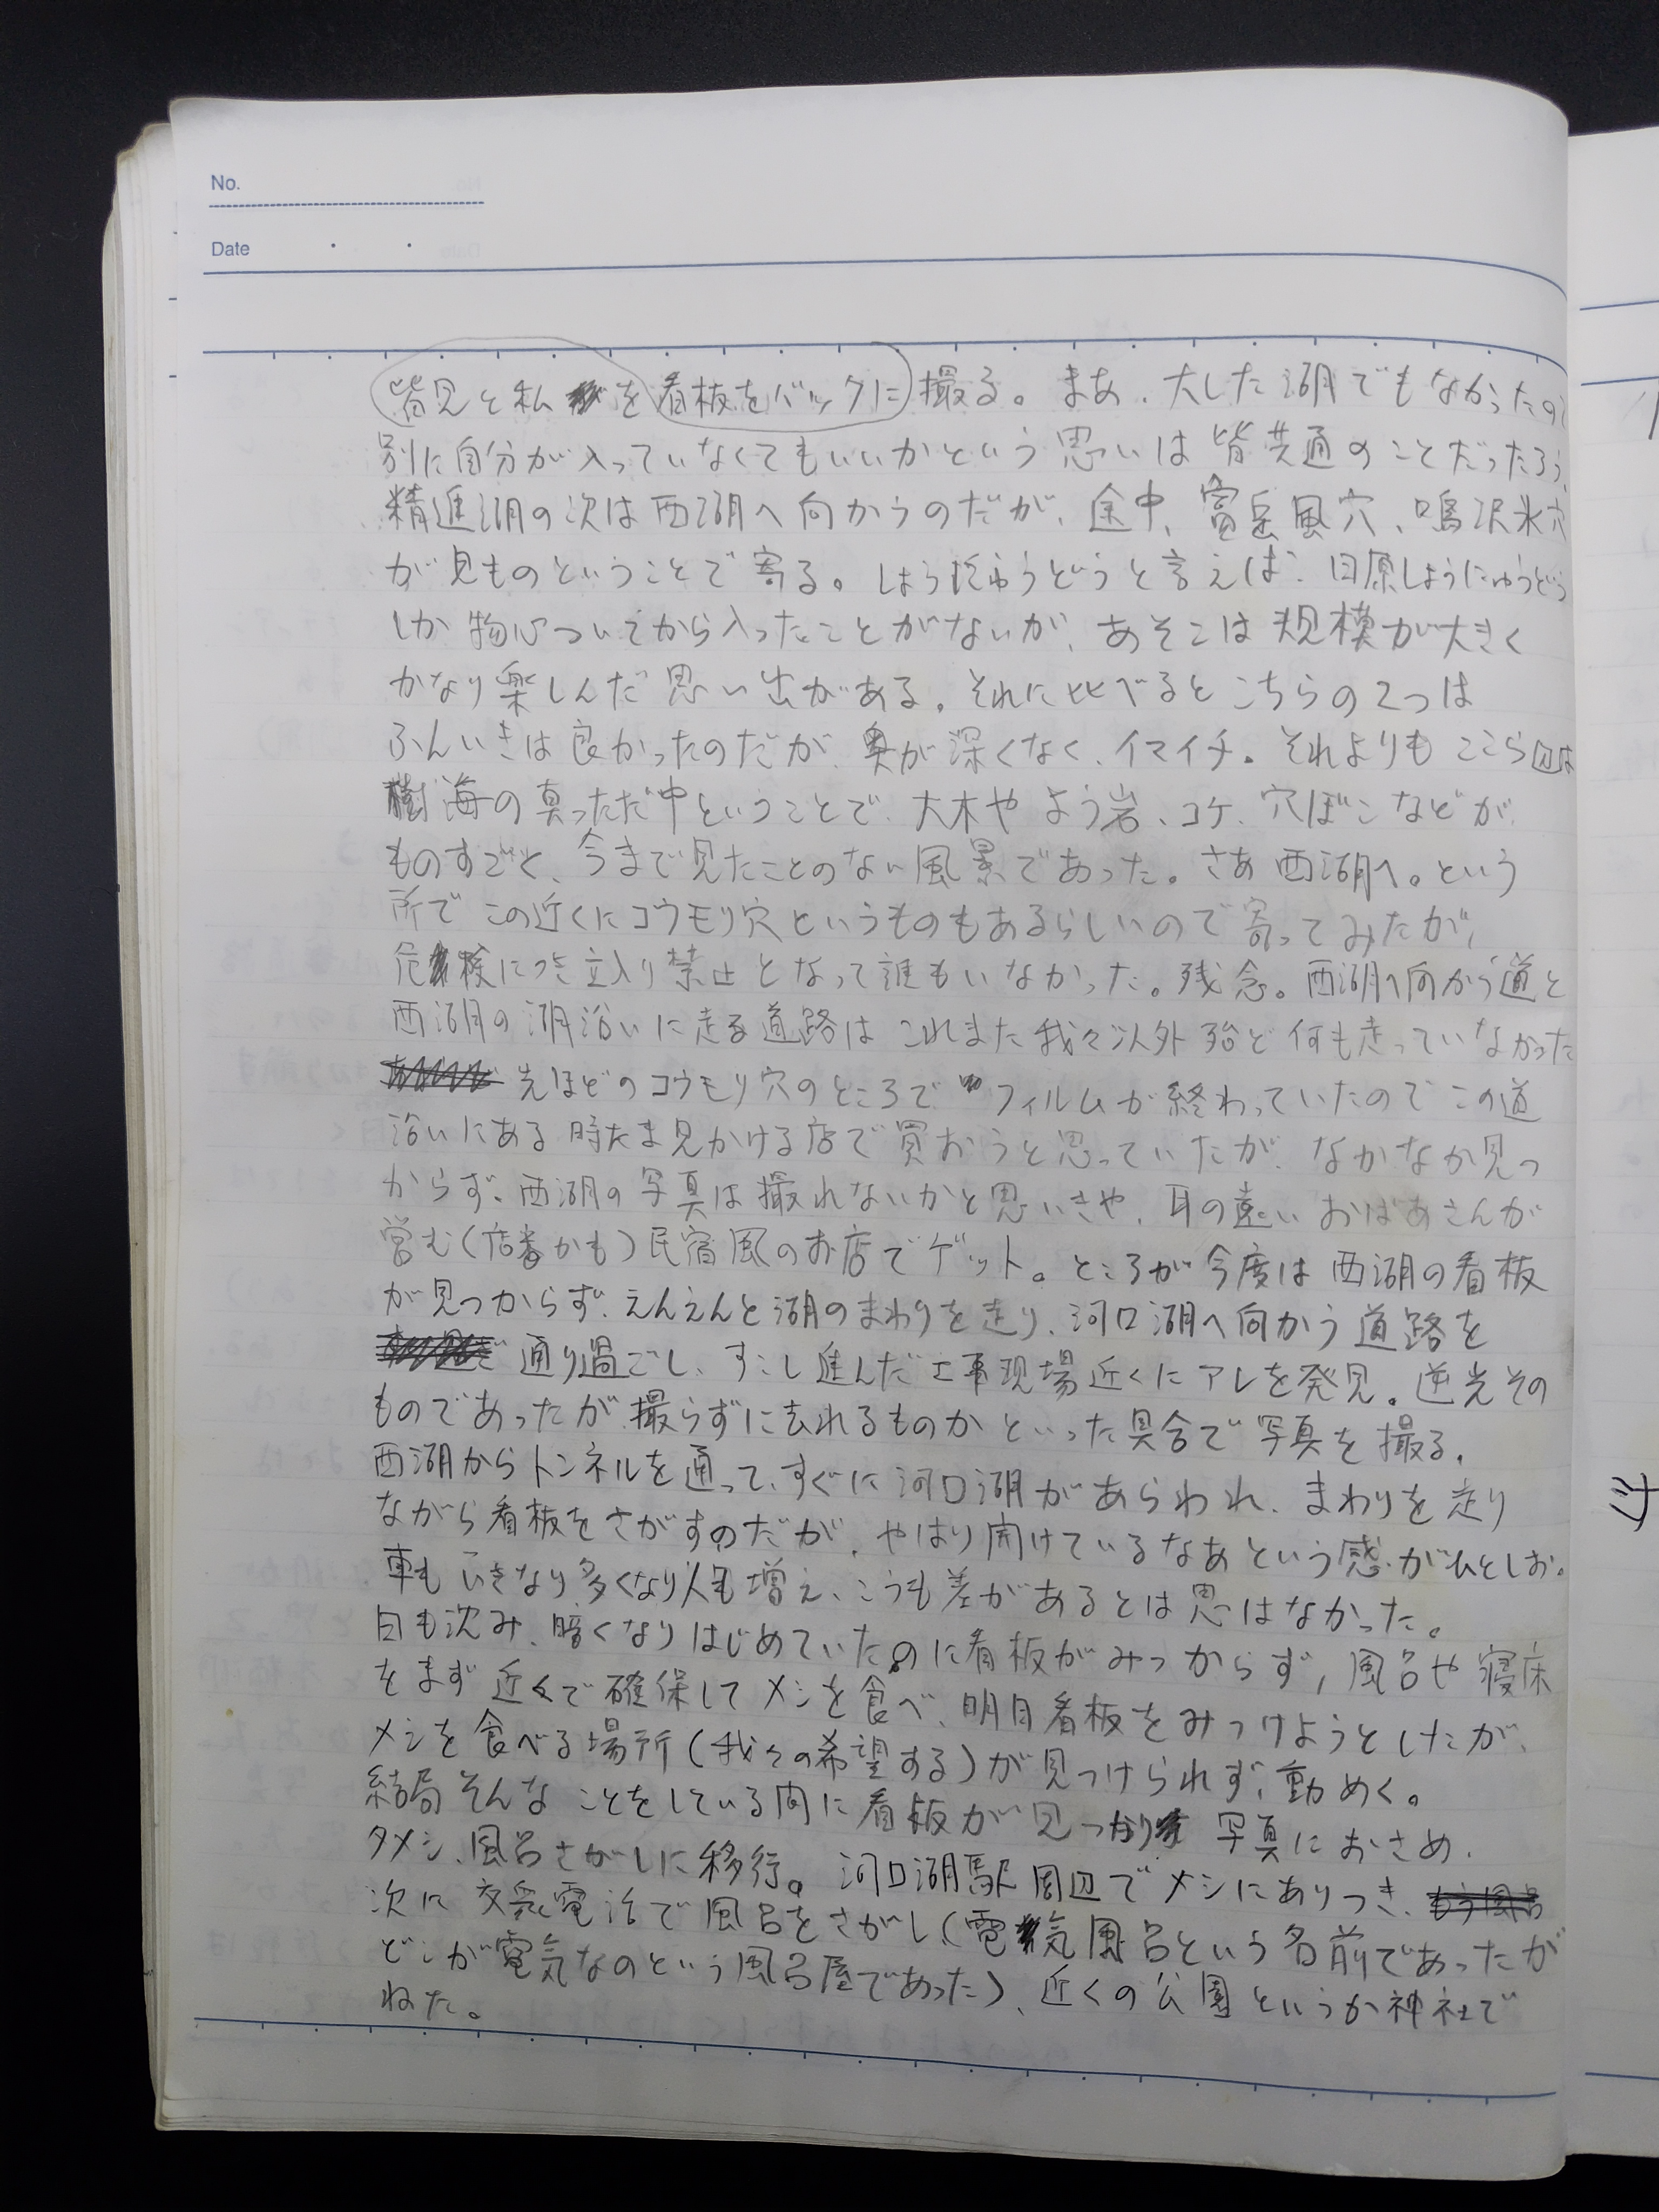 No.
Date
皆見と私を看板をバックに撮る。まあ、大した湖でもなかったので
別に自分が入っていなくてもいいかという思いは皆共通のことだったろう。
精進湖の次は西湖へ向かうのだが、途中、富岳風穴、鳴沢氷穴
が見ものということで寄る。しょうにゅうどうと言えば、日原しょうにゅうどう
しか物心ついてから入ったことがないが、あそこは規模が大きく
かなり楽しんだ思い出がある。それに比べるとこちらの2つは
ふんいきは良かったのだが、奥が深くなく、イマイチ。それよりもここら辺は
樹海の真っただ中ということで、大木やよう岩、コケ、穴ぼこなどが
ものすごく、今まで見たことのない風景であった。さあ西湖へ。という
所でこの近くにコウモリ穴というものもあるらしいので寄ってみたが、
危険につき立入り禁止となって誰もいなかった。残念。西湖へ向かう道と
西湖の湖沿いに走る道路はこれまた我々以外殆ど何も走っていなかった
先ほどのコウモリ穴のところでフィルムが終わっていたのでこの道
沿いにある時たま見かける店で買おうと思っていたが、なかなか見つ
からず、西湖の写真は撮れないかと思いきや、耳の遠いおばあさんが
営む(店番かも)民宿風のお店でゲット。ところが今度は西湖の看板
が見つからず、えんえんと湖のまわりを走り、河口湖へ向かう道路を
通り過ごし、すこし進んだ工事現場近くにアレを発見。逆光その
ものであったが、撮らずに去れるものかといった具合で写真を撮る。
西湖からトンネルを通って、すぐに河口湖があらわれ、まわりを走り
ながら看板をさがすのだが、やはり開けているなあという感がひとしお。
車もいきなり多くなり人も増え、こうも差があるとは思はなかった。
日も沈み、暗くなりはじめていたのに看板がみつからず、風呂や寝床
をまず近くで確保してメシを食べ、明日看板をみつけようとしたが、
メシを食べる場所(我々の希望する)が見つけられず、動めく。
結局そんなことをしている間に看板が見つかり写真におさめ、
夕メシ、風呂さがしに移行。河口湖駅周辺でメシにありつき、
次に公衆電話で風呂をさがし(電気風呂という名前であったが
どこが電気なのという風呂屋であった)、近くの公園というか神社で
ねた。